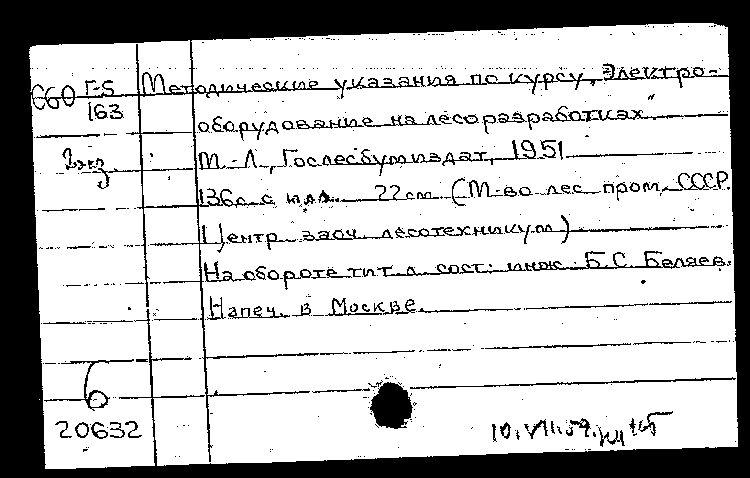 660 Г-5 Методические указания по курсу „Электро-
163 оборудование на лесоразработках"
2 экз. М.-Л., Гослесбумиздат, 1951
136 с. с илл. 22 см (М-во лес. пром. СССР.
Центр. заоч. лесотехникум)
На обороте тит. л. сост: инж. Б.С. Беляев.
Напеч. в Москве.
6
20632
10.VII.59.